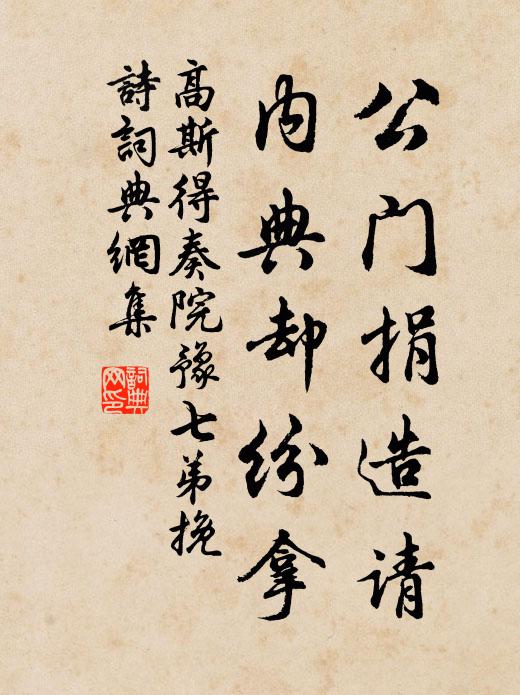 公门捐造请
内典却纷拿
高斯得奏院豫七弟挽
詩詞典網集
詞典網印